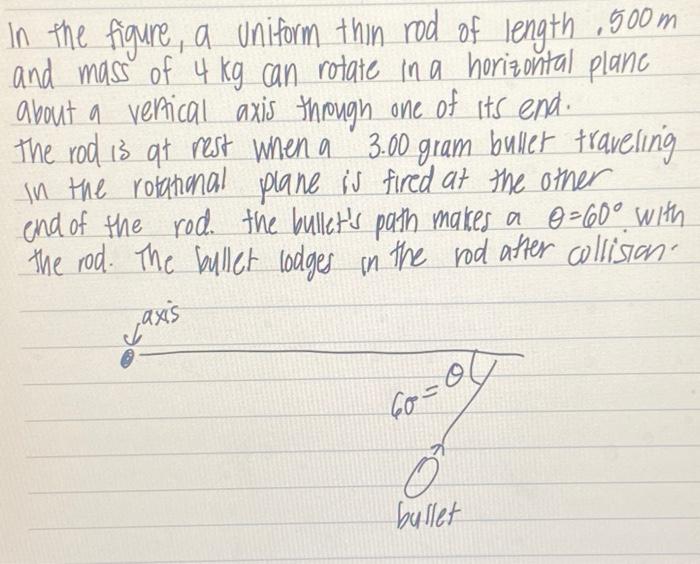 In the figure, a uniform thin rod of length .500m
and mass of 4 kg can rotate in a horizontal plane
about a vertical axis through one of its end.
The rod is at rest when a 3.00 gram bullet traveling
in the rotational plane is fired at the other
end of the rod. the bullet's path makes a θ=60° with
the rod. The bullet lodges in the rod after collision.
axis
60°=θ
bullet